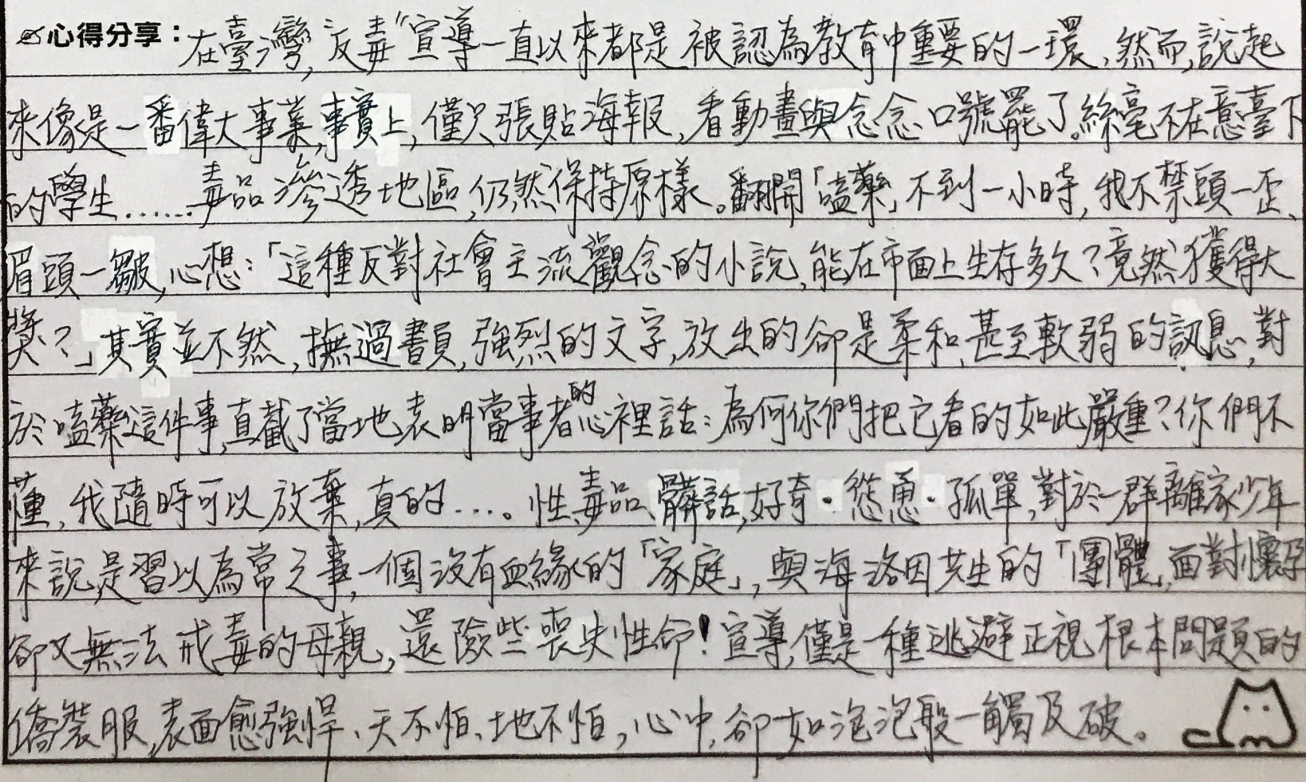 心得分享：在臺灣,反毒"宣導一直以來都是被認為教育中重要的一環、然而,說起
來像是一番偉大事業,事實上,僅只張貼海報,看動畫與念念口號罷了。絲毫不在意臺下
的學生……毒品滲透地區,仍然保持原樣。翻開「嗑藥」不到一小時,我不禁頭一歪、
眉頭一皺,心想:「這種反對社會主流觀念的小說,能在市面上生存多久?竟然獲得大
獎?」其實並不然,撫過書頁,強烈的文字,放出的卻是柔和,甚至軟弱的訊息,對
於嗑藥這件事,直截了當地表明當事者的心裡話:為何你們把它看的如此嚴重?你們不
懂,我隨時可以放棄,真的…。性、毒品、髒話,好奇、慫恿、孤單,對於一群離家少年
來說是習以為常之事,一個沒有血緣的「家庭」,與海洛因共生的「團體」,面對懷孕
卻又無法戒毒的母親,還險些喪失性命!宣導,僅是一種逃避正視根本問題的
僑裝服,表面愈強悍、天不怕、地不怕,心中,卻如泡泡般一觸及破。